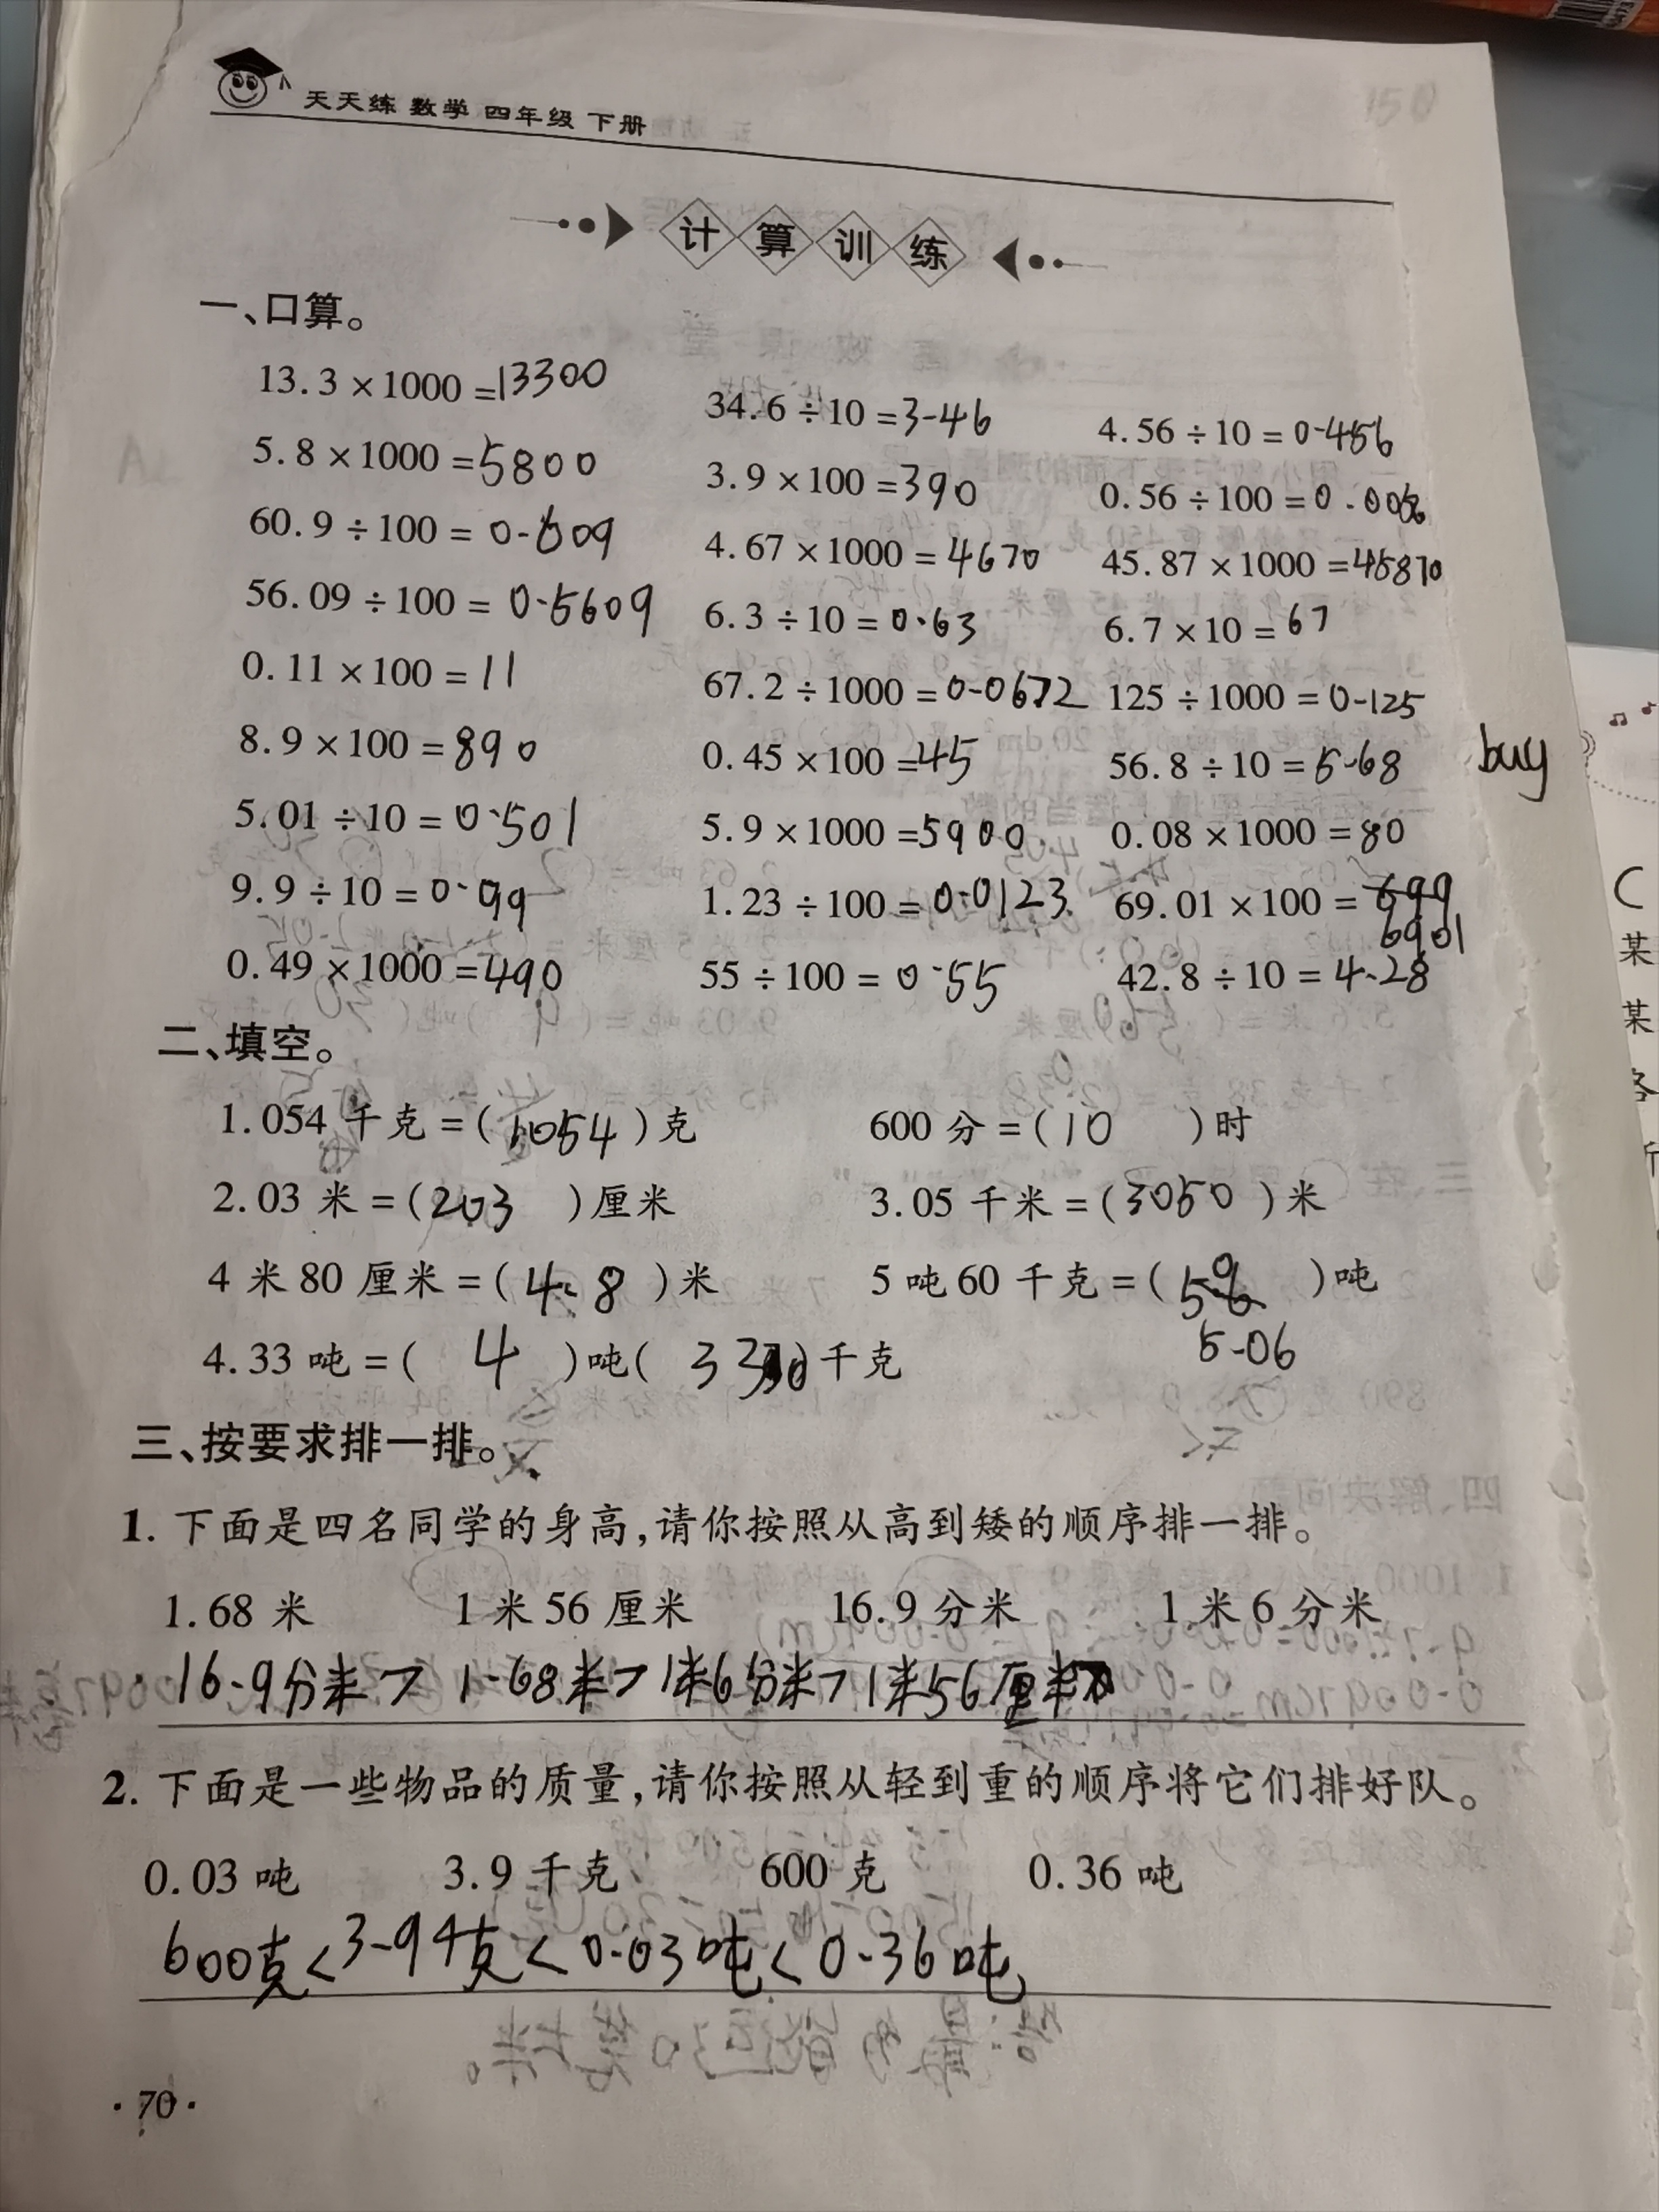 天天练 数学 四年级 下册
150
计算训练
一、口算。
13.3×1000=13300
34.6÷10=3.46
4.56÷10=0.456
5.8×1000=5800
3.9×100=390
0.56÷100=0.0056
60.9÷100=0.609
4.67×1000=4670
45.87×1000=45870
56.09÷100=0.5609
6.3÷10=0.63
6.7×10=67
0.11×100=11
67.2÷1000=0.0672
125÷1000=0.125
8.9×100=890
0.45×100=45
56.8÷10=5.68
buy
5.01÷10=0.501
5.9×1000=5900
0.08×1000=80
9.9÷10=0.99
1.23÷100=0.0123
69.01×100=699
6901
0.49×1000=490
55÷100=0.55
42.8÷10=4.28
二、填空。
1.054千克=(1054)克 600分=(10)时
2.03米=(203)厘米 3.05千米=(3050)米
4米80厘米=(4.8)米 5吨60千克=( )吨
5.06
4.33吨=(4)吨(330)千克
三、按要求排一排。
1.下面是四名同学的身高,请你按照从高到矮的顺序排一排。
1.68米 1米56厘米 16.9分米 1米6分米
16.9分米>1.68米>1米6分米>1米56厘米
2.下面是一些物品的质量,请你按照从轻到重的顺序将它们排好队。
0.03吨 3.9千克 600克 0.36吨
600克<3.9千克<0.03吨<0.36吨
·70·
某
某